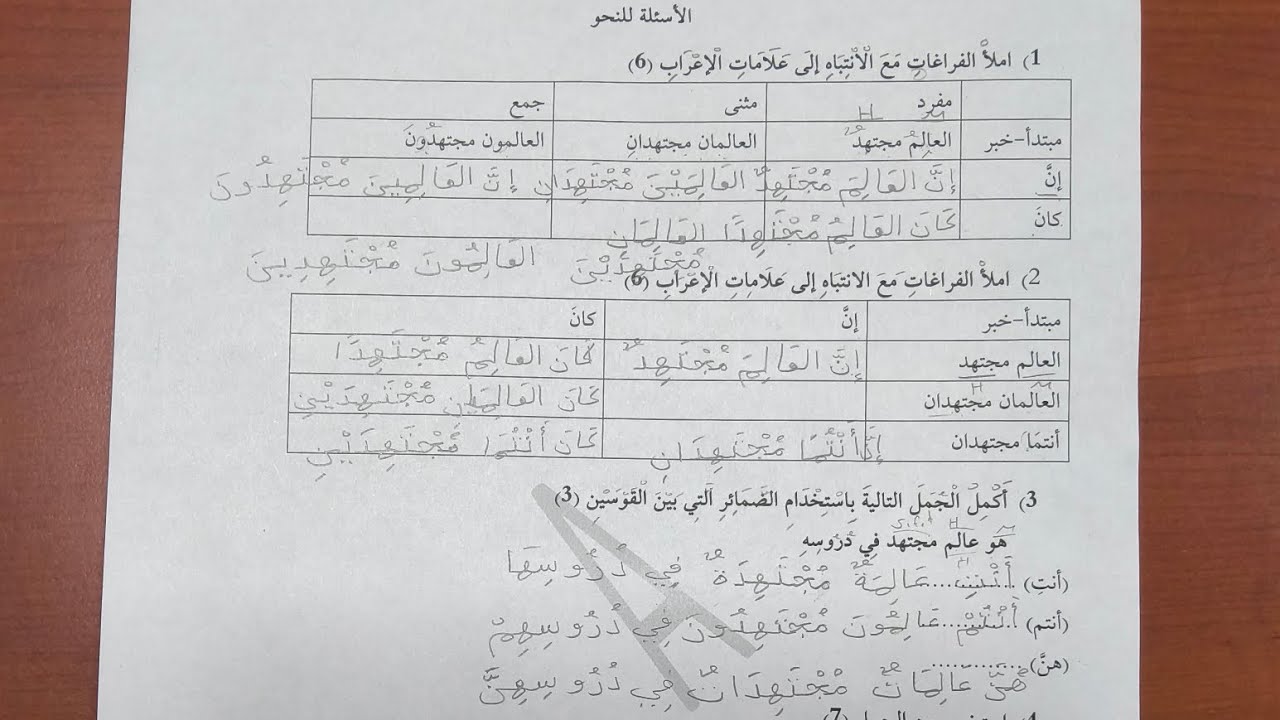 الأسئلة للنحو
1) املأْ الفراغاتِ مَعَ الْاَنْتِبَاهِ إِلَى عَلَامَاتِ الْإِعْرَابِ (6)
مفرد مثنى جمع
مبتدأ-خبر العالِمُ مجتهدٌ العالمان مجتهدانِ العالمون مجتهدُونَ
إِنَّ إِنَّ العَالِمَ مُجْتَهِدٌ العَالِمَيْنَ مُجْتَهِدَانِ إِنَّ العَالِمِينَ مُجْتَهِدُونَ
كانَ كَانَ العَالِمُ مُجْتَهِدًا العَالِمَانِ
مُجْتَهِدَيْنَ العَالِمُونَ مُجْتَهِدِينَ
2) املأْ الفراغاتِ مَعَ الانتبَاهِ إلى عَلَامَاتِ الْإِعْرَابِ (6)
مبتدأ-خبر إنَّ كانَ
العالم مجتهد إِنَّ العَالِمَ مُجْتَهِدٌ كَانَ العَالِمُ مُجْتَهِدًا
العَالمان مجتهدان كَانَ العَالِمَانِ مُجْتَهِدَيْنِ
أنتمَا مجتهدان إِنَّ أَنْتُمَا مُجْتَهِدَانِ كَانَ أَنْتُمَا مُجْتَهِدَيْنِ
3) أَكْمِلْ الْجُمَلَ التاليةَ بِاسْتِخْدَامِ الضَّمائِرِ الَّتِي بَيْنَ الْقَوْسَيْنِ (3)
هُو عالم مجتهد فِي دُرُوسِهِ
(أنتِ) أَنْتِ..... عَالِمَةٌ مُجْتَهِدَةٌ فِي دُرُوسِهَا
(أنتم) أَنْتُمْ..... عَالِمُونَ مُجْتَهِدُونَ فِي دُرُوسِهِمْ
(هنَّ) .............
هُنَّ عَالِمَاتٌ مُجْتَهِدَاتٌ فِي دُرُوسِهِنَّ
(7)